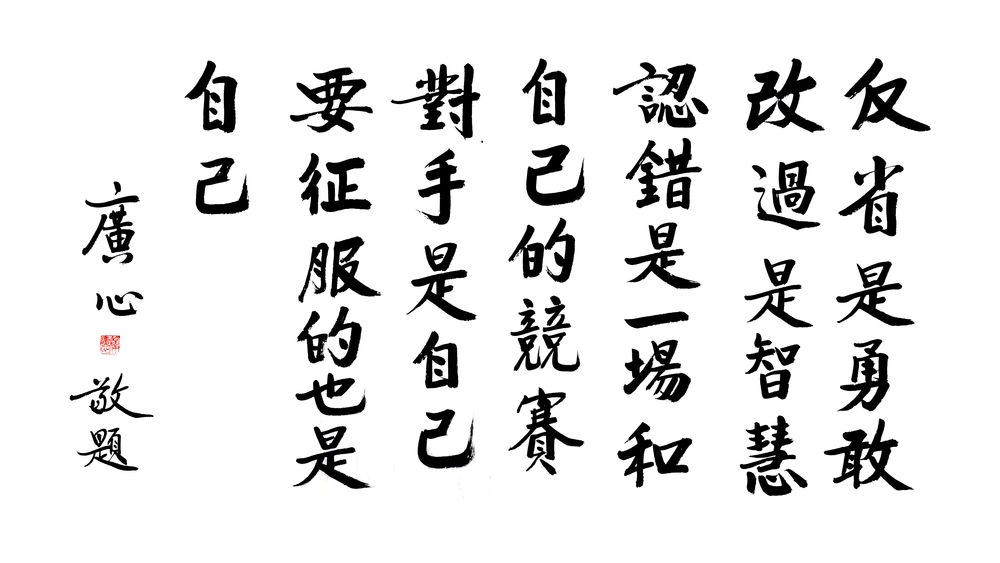 反省是勇敢
改過是智慧
認錯是一場和
自己的競賽
對手是自己
要征服的也是
自己
廣心
敬題